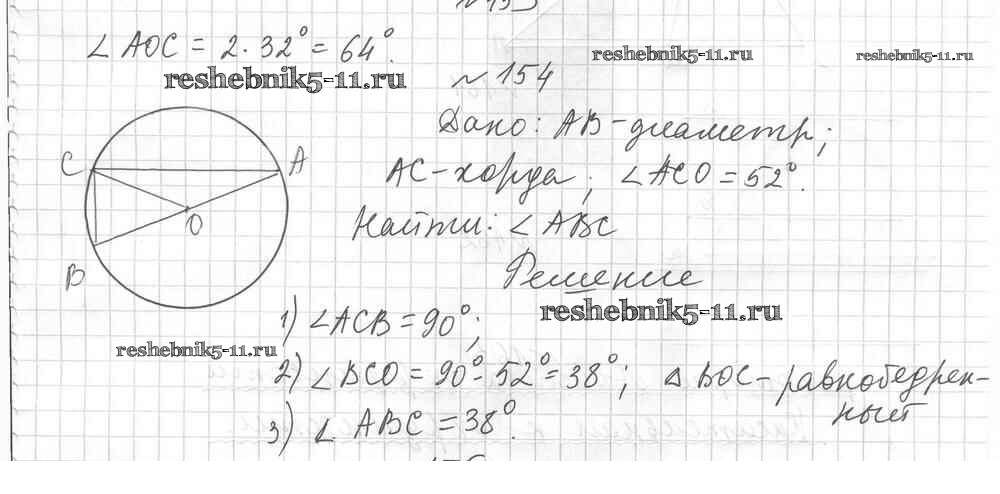 ∠ AOC = 2 · 32° = 64°.
reshebnik5-11.ru
reshebnik5-11.ru
reshebnik5-11.ru
№ 154
Дано: AB - диаметр;
AC - хорда; ∠ACO = 52°.
Найти: ∠ ABC
Решение
C
A
O
B
1) ∠ACB = 90°;
reshebnik5-11.ru
reshebnik5-11.ru
2) ∠ BCO = 90° - 52° = 38°; △ BOC - равнобедрен-
ный
3) ∠ ABC = 38°.